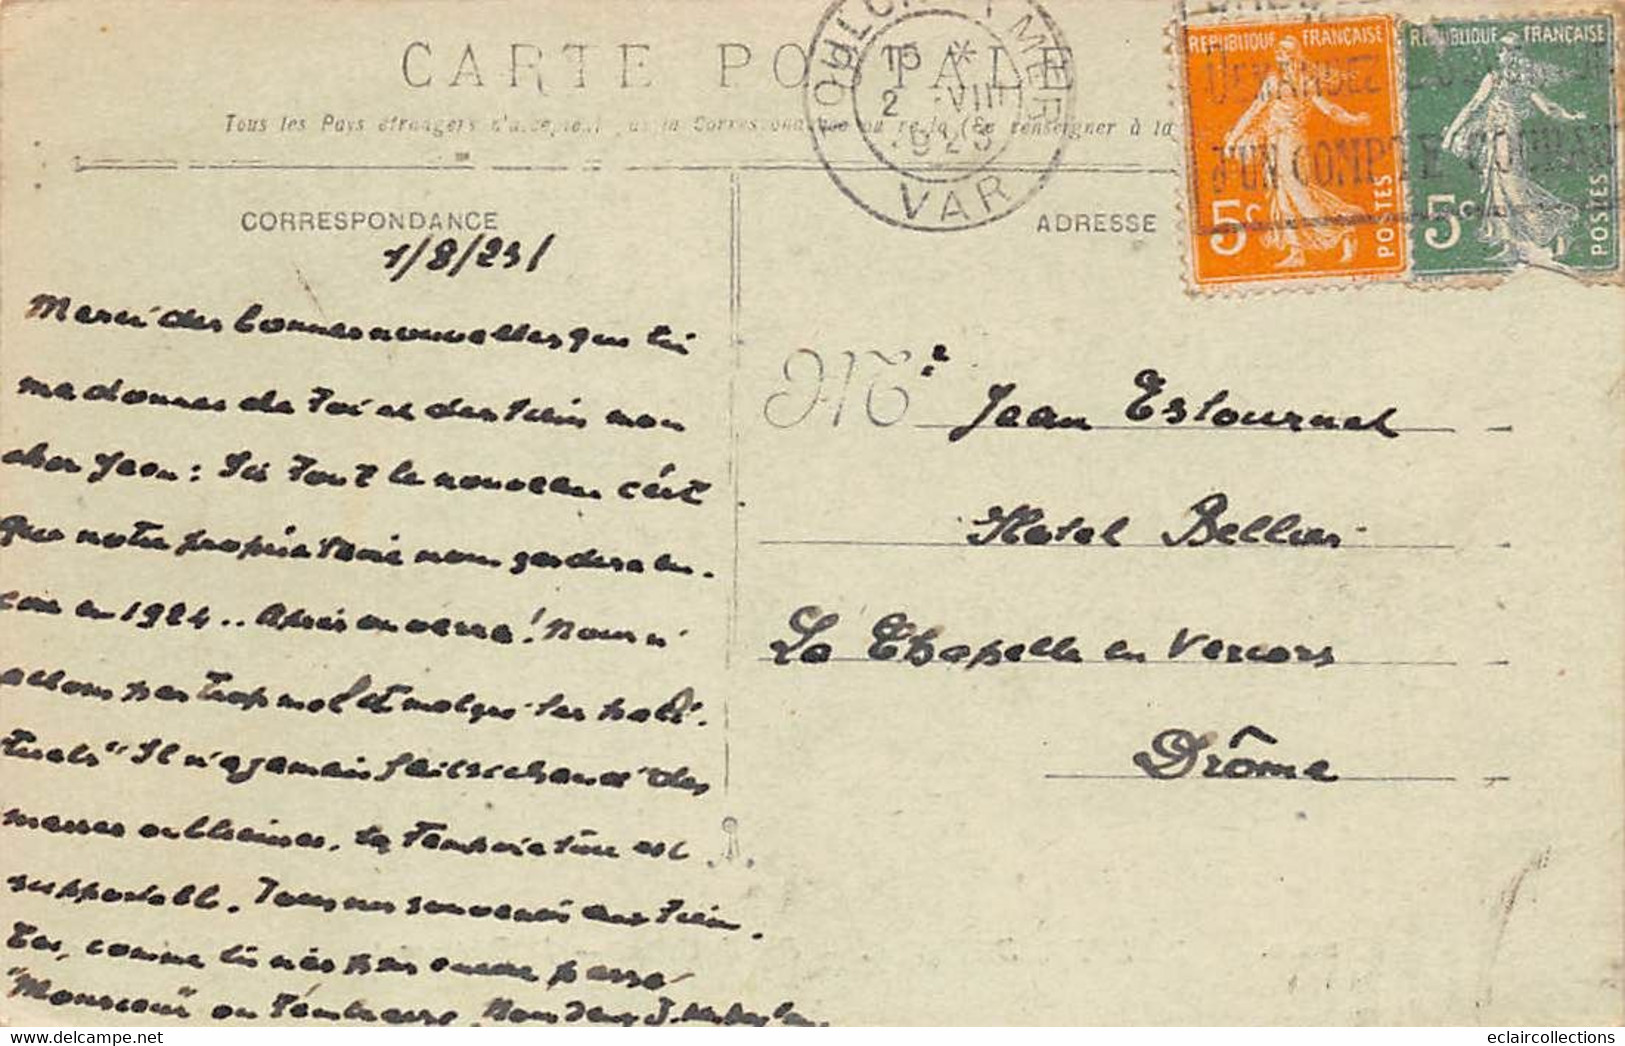 CARTE POSTALE
Tous les Pays étrangers n'acceptent pas la Correspondance au recto (Se renseigner à la
TOULON S MER
15 *
2 VIII
1923
VAR
REPUBLIQUE FRANÇAISE
5c POSTES
REPUBLIQUE FRANÇAISE
5c POSTES
DEMANDEZ
D'UN COMPTE COURANT
CORRESPONDANCE
ADRESSE
1/8/23/
Merci des bonnes nouvelles que tu
me donnes de toi et des tiens mon
cher Jean : Ici tout le nouveau c'est
que notre propriétaire nous gardera en-
core en 1924 .. Après on verra ! Nous n'
allons pas trop mal et malgré les habi-
tuels " Il n'a jamais fait si chaud " des
la température est
supportable. Tous nos souvenirs aux tiens.
comme tu n'es pas encore passé
"Monsieur" on Nous deux
M r Jean Estournel
Hotel Bellier
La Chapelle en Vercors
Drôme
eclaircollections